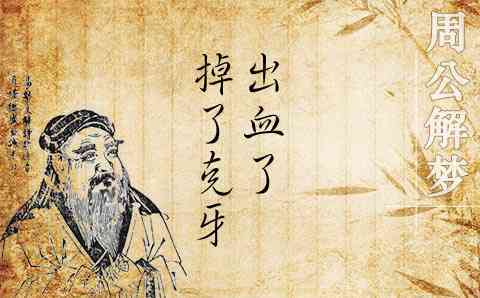 周公解梦
出血了
掉了克牙